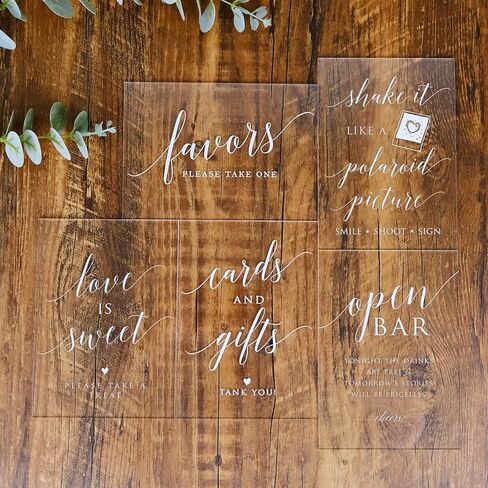 favors
PLEASE TAKE ONE
shake it
LIKE A
polaroid
picture
SMILE • SHOOT • SIGN
love
IS
sweet
PLEASE TAKE A
TREAT
cards
AND
gifts
TANK YOU!
open
BAR
TONIGHT THE DRINKS
ARE FREE &
TOMORROW'S STORIES
WILL BE PRICELESS
cheers